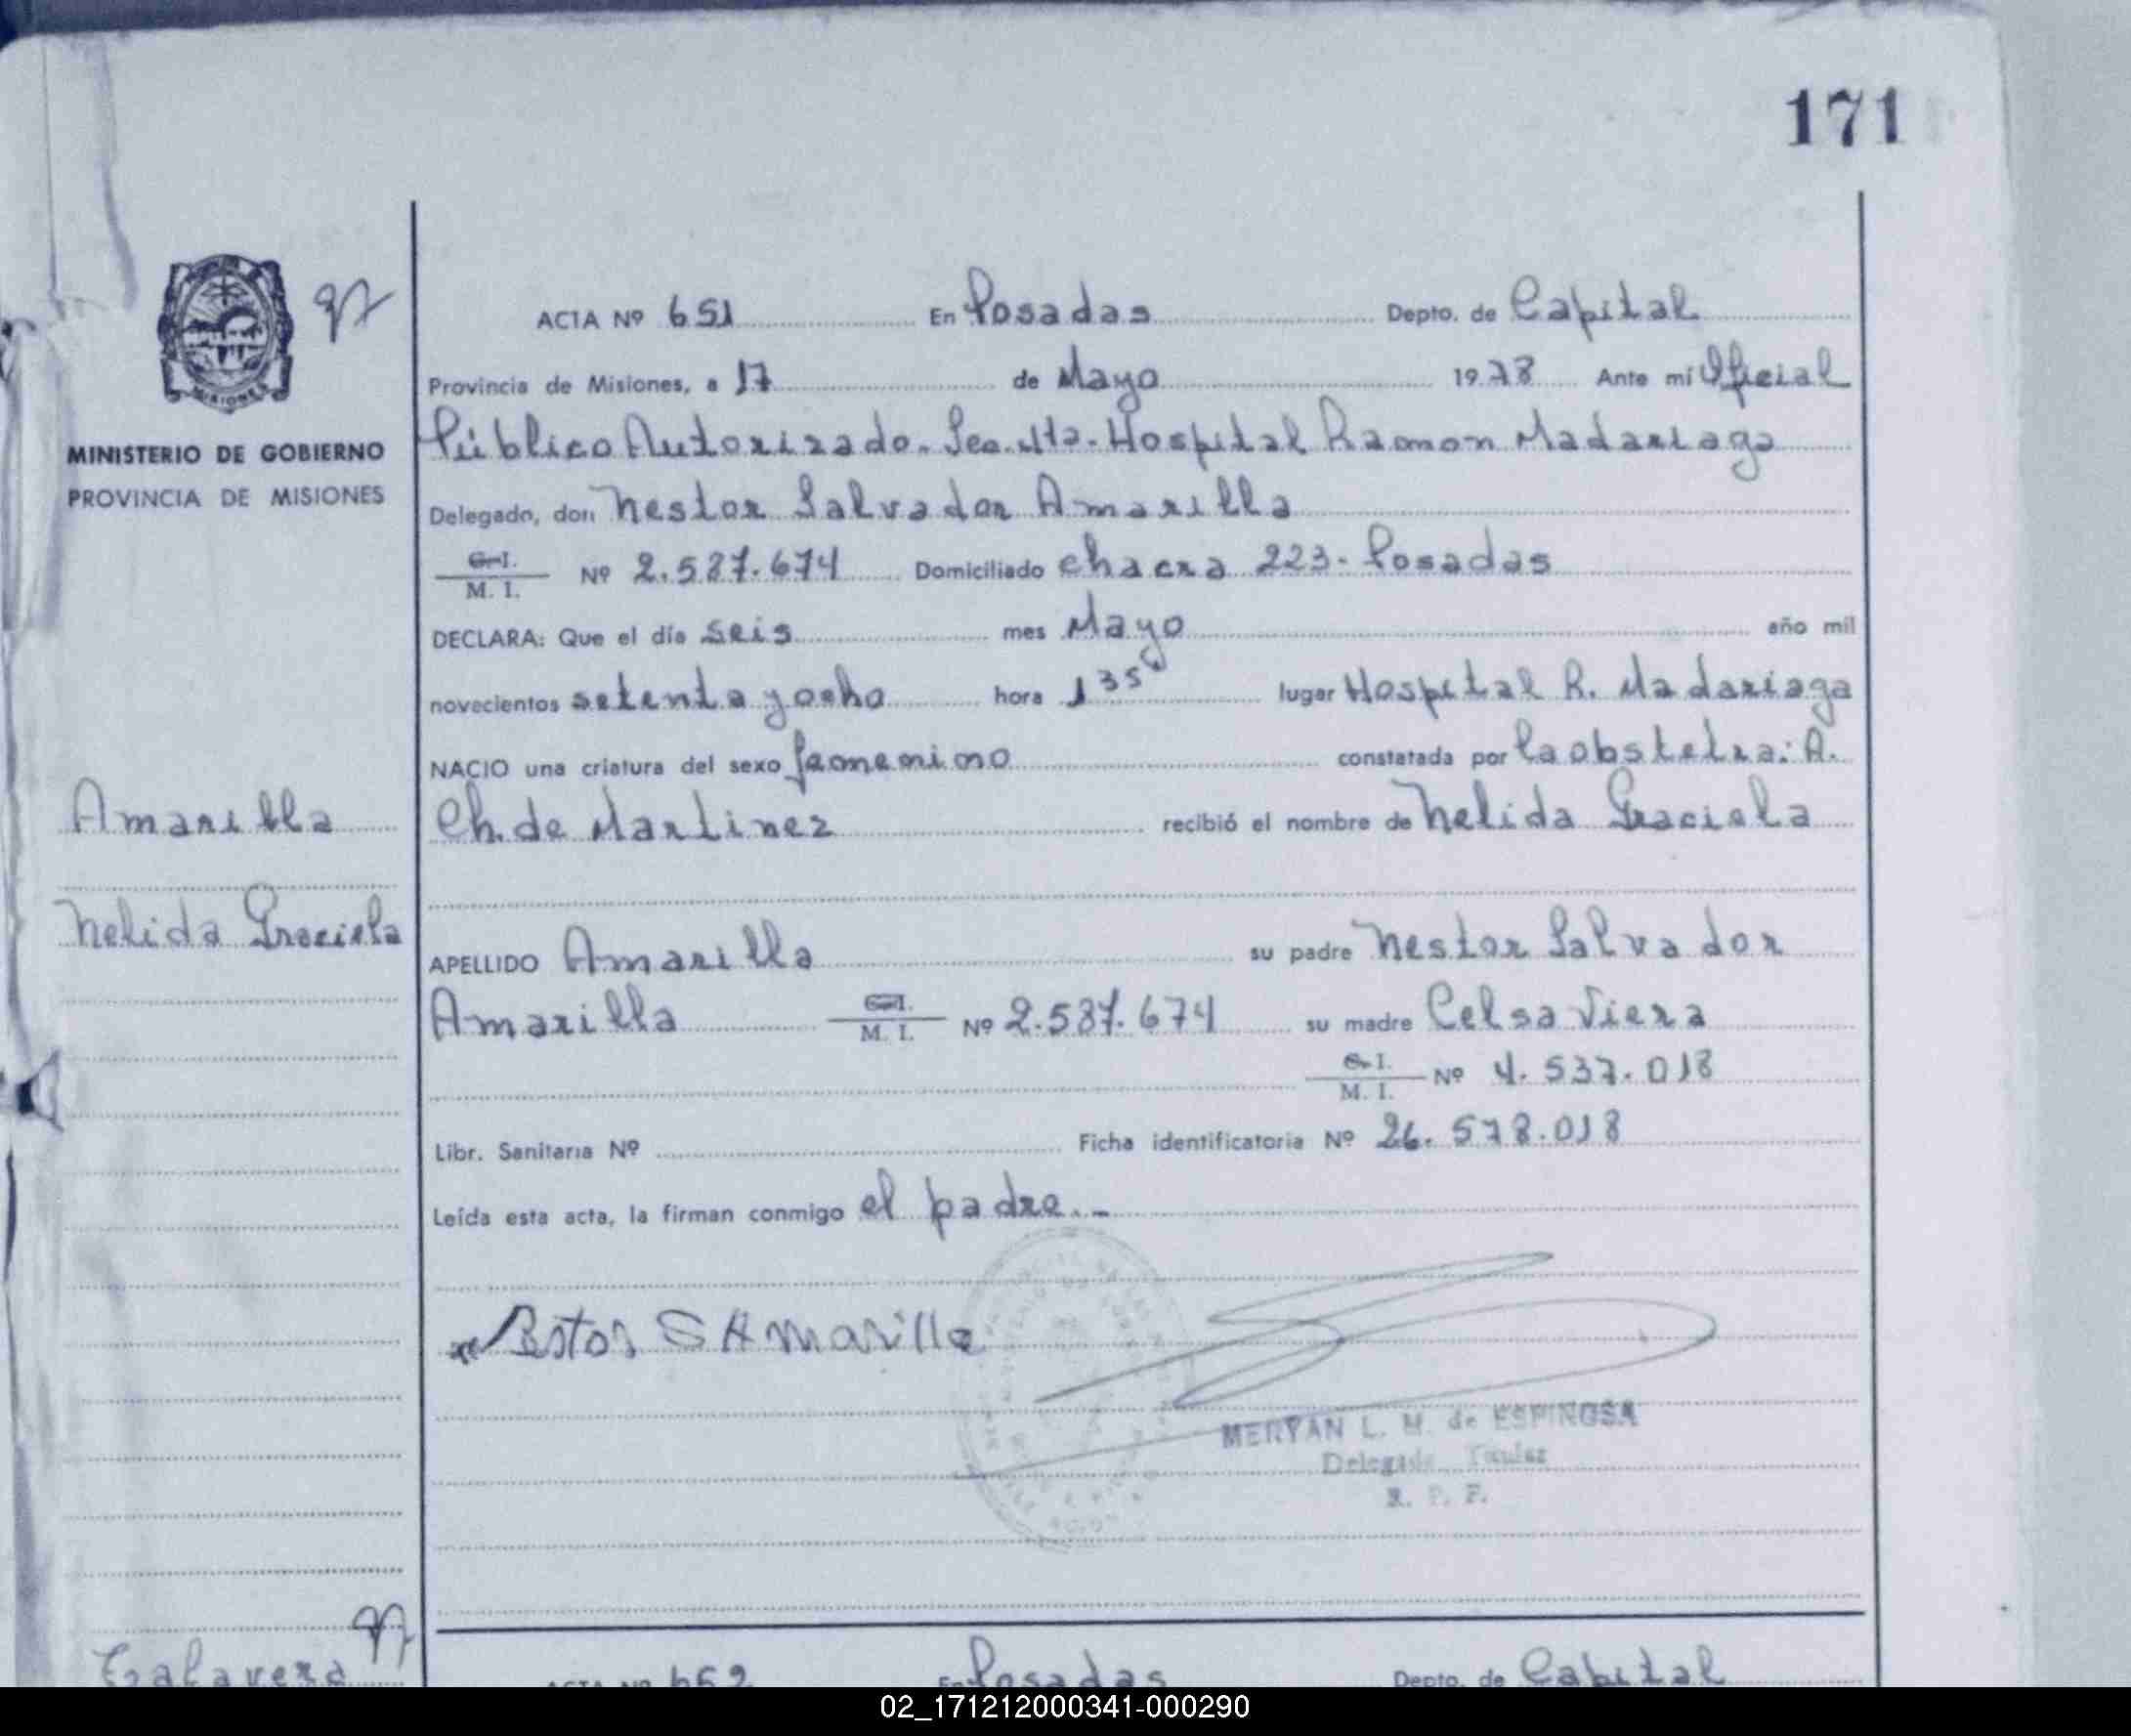 171
ACTA Nº 651 En Posadas Depto. de Capital
Provincia de Misiones, a 17 de Mayo 1978 Ante mi Oficial
MINISTERIO DE GOBIERNO
PROVINCIA DE MISIONES
MISIONES
Público Autorizado. Sec. 4ta. Hospital Ramon Madariaga
Delegado, don Nestor Salvador Amarilla
C. I.
M. I. Nº 2.587.674 Domiciliado chacra 223- Posadas
DECLARA: Que el día seis mes Mayo año mil
novecientos setenta y ocho hora 1 35 lugar Hospital R. Madariaga
NACIO una criatura del sexo femenino constatada por la obstetra: A.
Amarilla
Ch. de Martinez recibió el nombre de Nelida Graciela
Nelida Graciela
APELLIDO Amarilla su padre Nestor Salvador
Amarilla C. I.
M. I. Nº 2.587.674 su madre Celsa Viera
C. I.
M. I. Nº 4.537.018
Libr. Sanitaria Nº Ficha identificatoria Nº 26.578.018
Leída esta acta, la firman conmigo el padre.-
Nestor S Amarilla
MERYAN L. M. de ESPINOSA
Delegada Titular
R. P. P.
Talavera
ACTA Nº 652 En Posadas Depto. de Capital
02_171212000341-000290